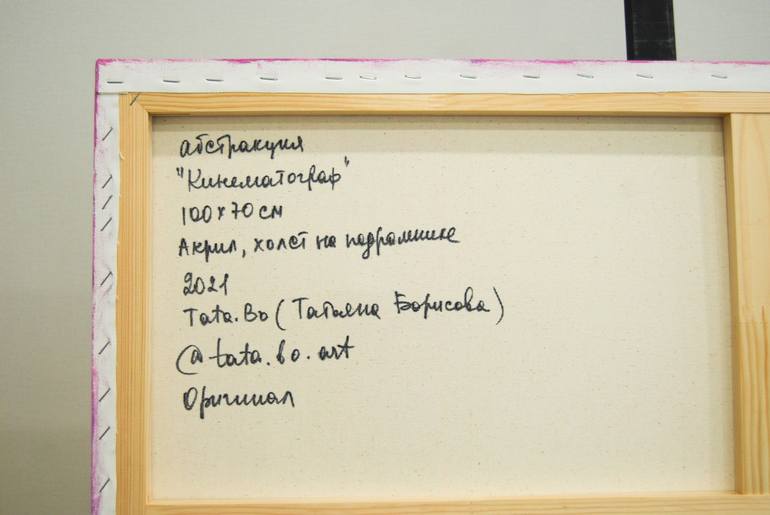 абстракция
"Кинематограф"
100х70 см
Акрил, холст на подрамнике
2021
Tata.Bo (Татьяна Борисова)
@tata.bo.art
Оригинал